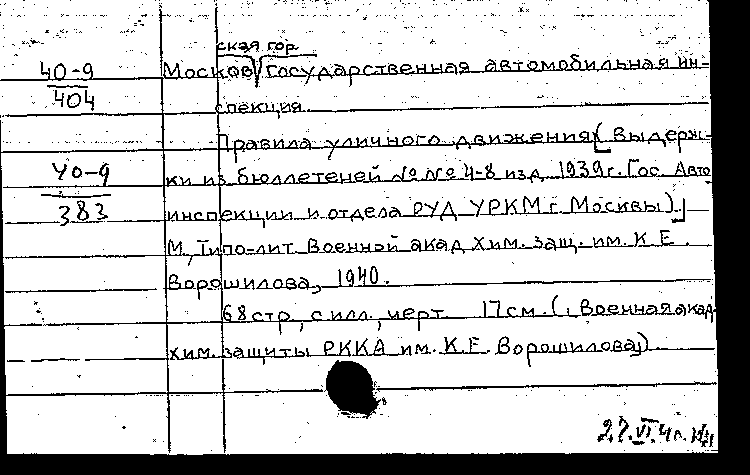 ская гор
40-9 Москов Государственная автомобильная ин-
404 спекция.
Правила уличного движения (Выдерж-
40-9 ки из бюллетеней №№ 4-8 изд. 1939г. Гос. Авто
383 инспекции и отдела РУД УРКМ г. Москвы).]
М., Типо-лит. Военной акад Хим. защ. им. К. Е.
Ворошилова, 1940.
68 стр, с илл., черт. 17см. (Военная акад.
хим. защиты РККА им. К.Е. Ворошилова).
27.VI.41.